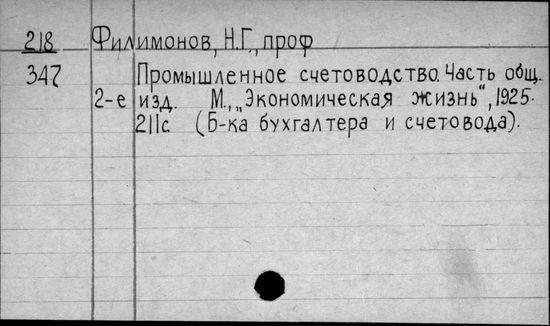 218 Филимонов, Н.Г., проф
347 Промышленное счетоводство. Часть общ.
2-е изд. М., „Экономическая жизнь“, 1925.
211с (Б-ка бухгалтера и счетовода).